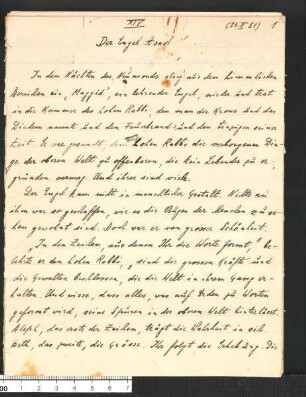 XIV (24.II.51) 1
Der Engel Asael
In den Nächten des Neumonds stieg aus den himmlischen
Bereichen ein "Maggid", ein lehrender Engel, nieder und trat
in die Kammer des hohen Rabbi, den man die Krone und das
Diadem nannte und den Feuerbrand und den Einzigen seiner
Zeit. Er war gesandt, dem hohen Rabbi die verborgenen Din-
ge der oberen Welt zu offenbaren, die kein Lebender zu er-
gründen vermag. Und ihrer sind viele.
Der Engel kam nicht in menschlicher Gestalt. Nichts an
ihm war so geschaffen, wie es die Augen der Menschen zu se-
hen gewohnt sind. Doch war er von grosser Schönheit.
"In den Zeichen, aus denen Ihr die Worte formt," be-
lehrte er den hohen Rabbi, "sind die grossen Kräfte und
die Gewalten beschlossen, die die Welt in ihrem Gang er-
halten. Und wisse, dass alles, was auf Erden zu Worten
geformt wird, seine Spuren in der oberen Welt hinterlässt.
Aleph, das erste der Zeichen, trägt die Wahrheit in sich.
Beth, das zweite, die Grösse. Ihr folgt die Erhebung. Die